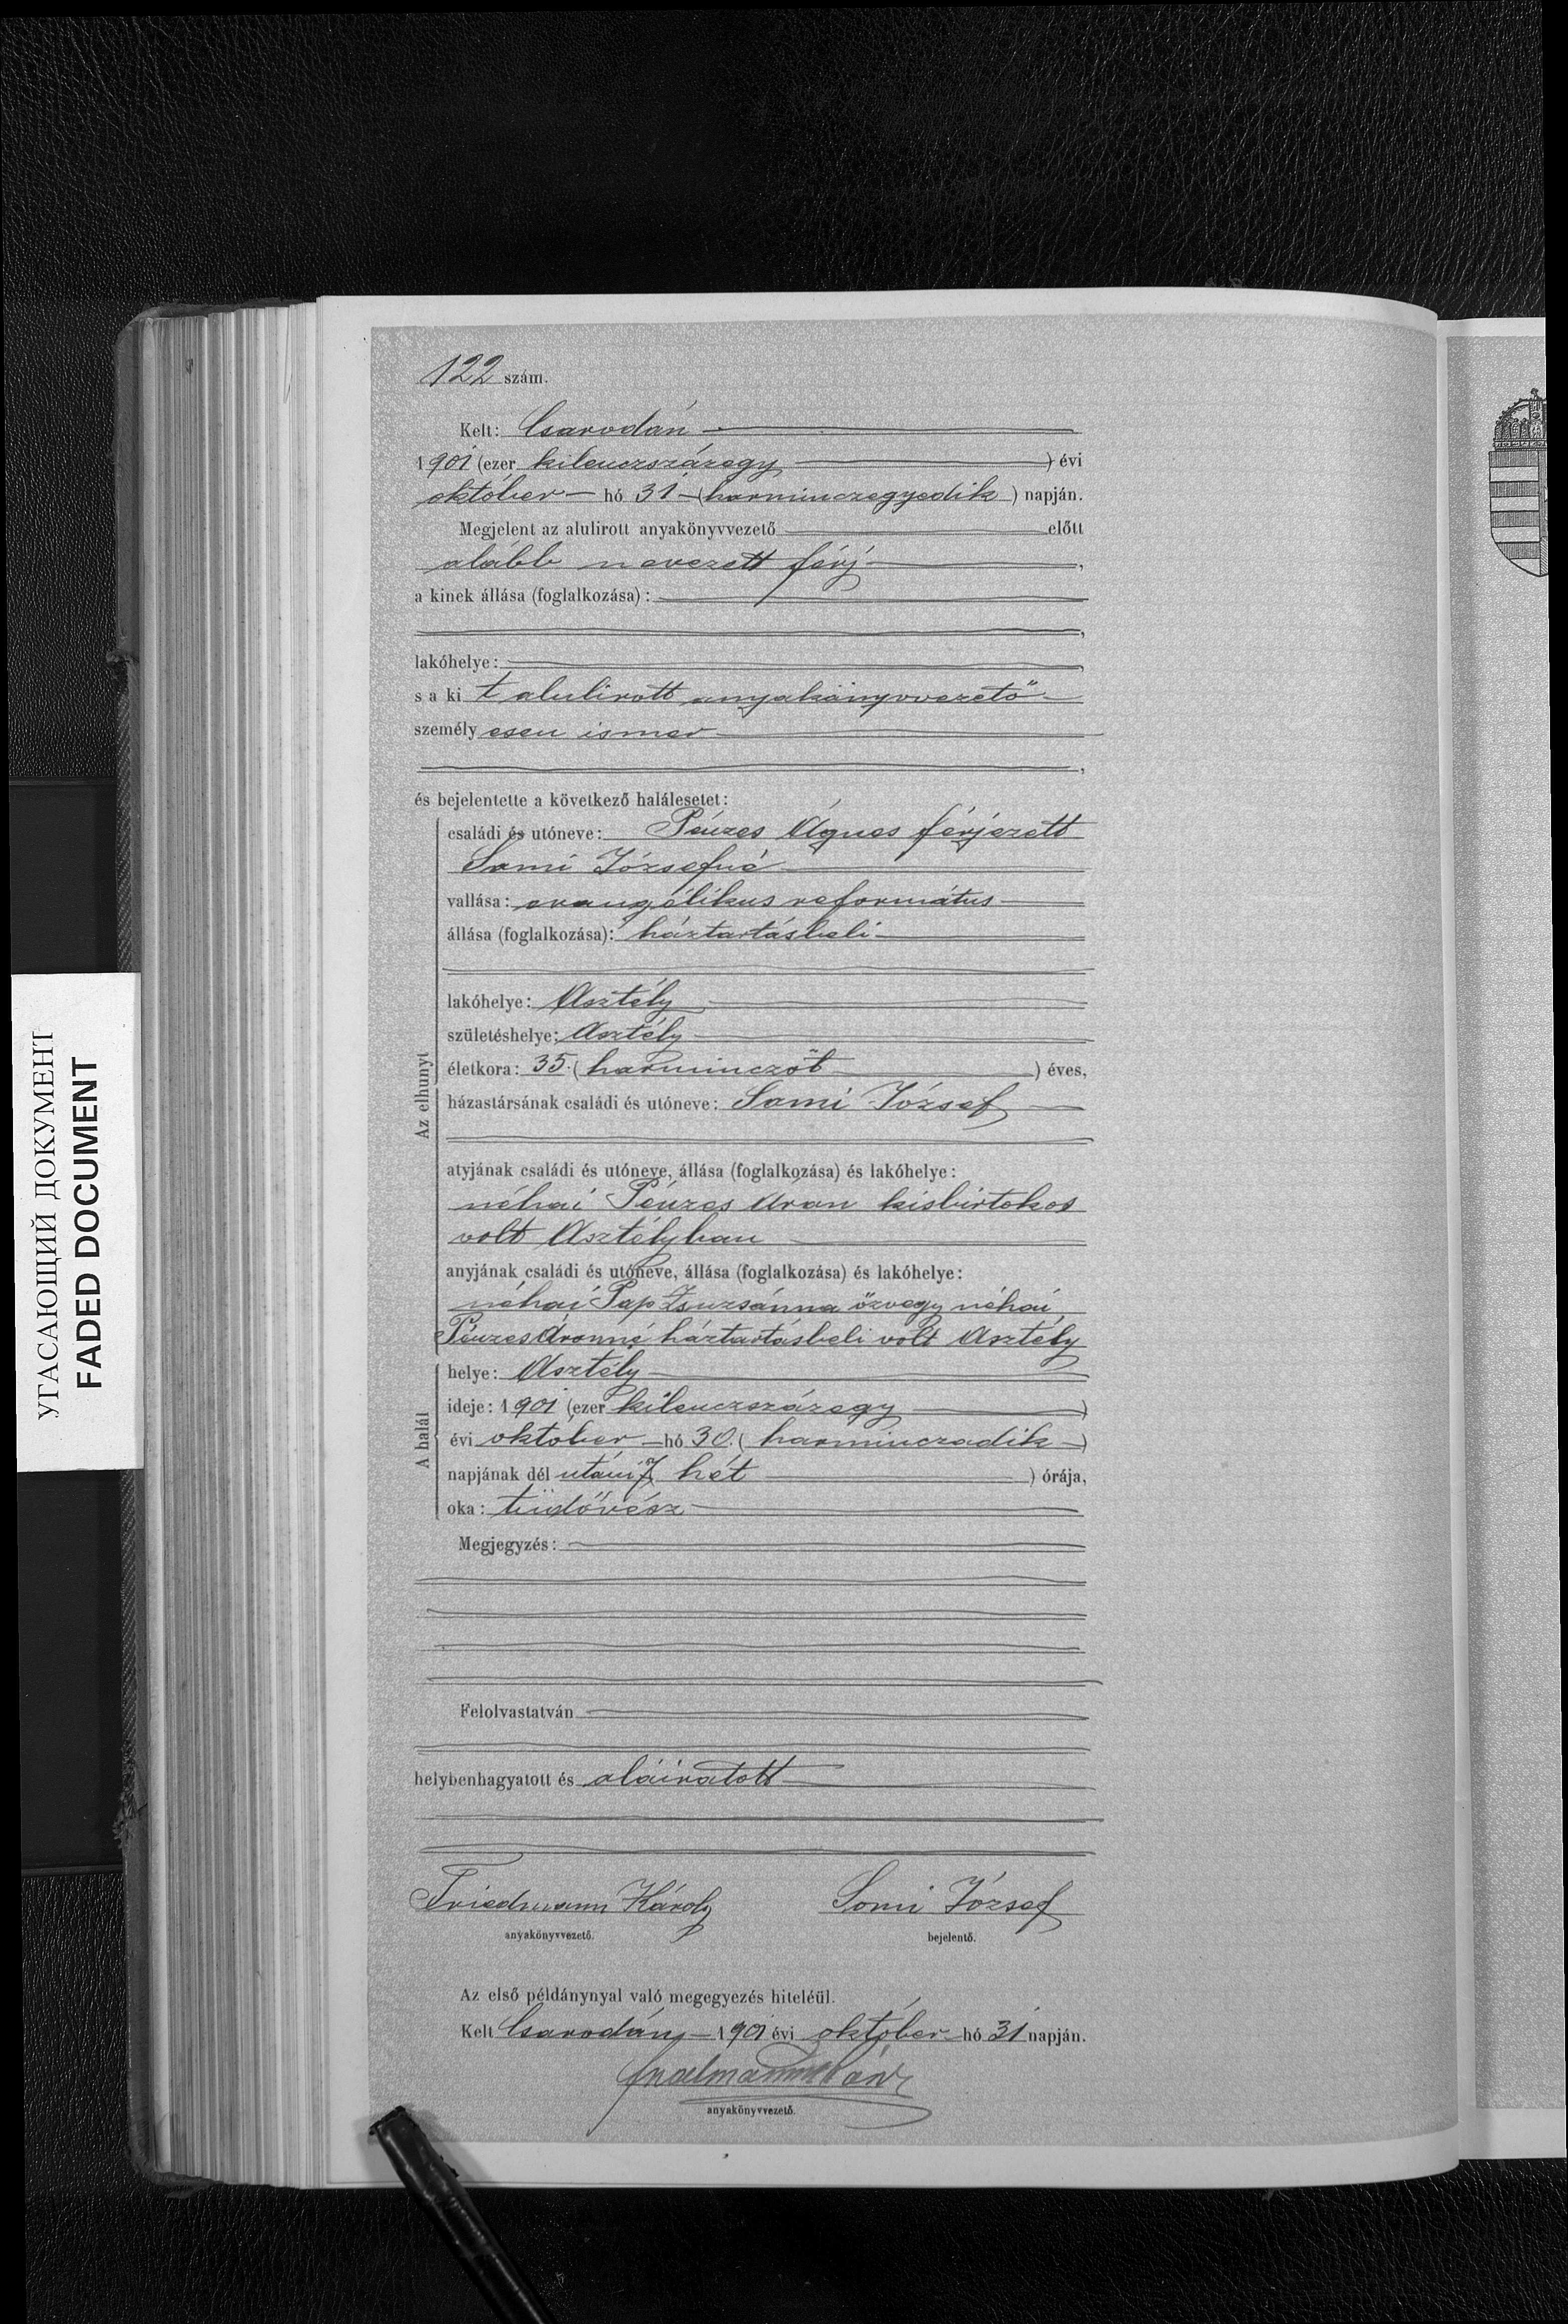 122 szám.
Kelt: Csarodán
1901 (ezer kilenczszázegy) évi
október hó 31 (harminczegyedik) napján.
Megjelent az alulirott anyakönyvvezető előtt
alább nevezett férj,
a kinek állása (foglalkozása):
,
lakóhelye:
s a ki t alulirott anyakönyvvezető
személy esen ismer
,
és bejelentette a következő halálesetet:
Az elhunyt
családi és utóneve: Pénzes Ágnes férjezett
Sami Józsefné
vallása: evangélikus református
állása (foglalkozása): háztartásbeli
lakóhelye: Asztély
születéshelye: Asztély
életkora: 35 (harminczöt) éves,
házastársának családi és utóneve: Sami József
atyjának családi és utóneve, állása (foglalkozása) és lakóhelye:
néhai Pénzes Áron kisbirtokos
volt Asztélyban
anyjának családi és utóneve, állása (foglalkozása) és lakóhelye:
néhai Pap Zsuzsánna özvegy néhai
Pénzes Áronné háztartásbeli volt Asztély
A halál
helye: Asztély
ideje: 1901 (ezer kilenczszázegy)
évi október hó 30. (harminczadik)
napjának dél utáni 7 hét) órája,
oka: tüdővész
Megjegyzés:
Felolvastatván
helybenhagyatott és aláiratott
Friedmann Károly Somi József
anyakönyvvezető. bejelentő.
Az első példánynyal való megegyezés hiteléül.
Kelt Csarodán 1901 évi október hó 31 napján.
anyakönyvvezető.
УГАСАЮЩИЙ ДОКУМЕНТ
FADED DOCUMENT